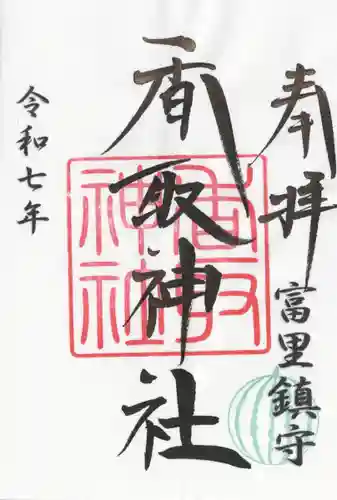 奉拝
富里鎮守
香取神社
令和七年
香取
神社